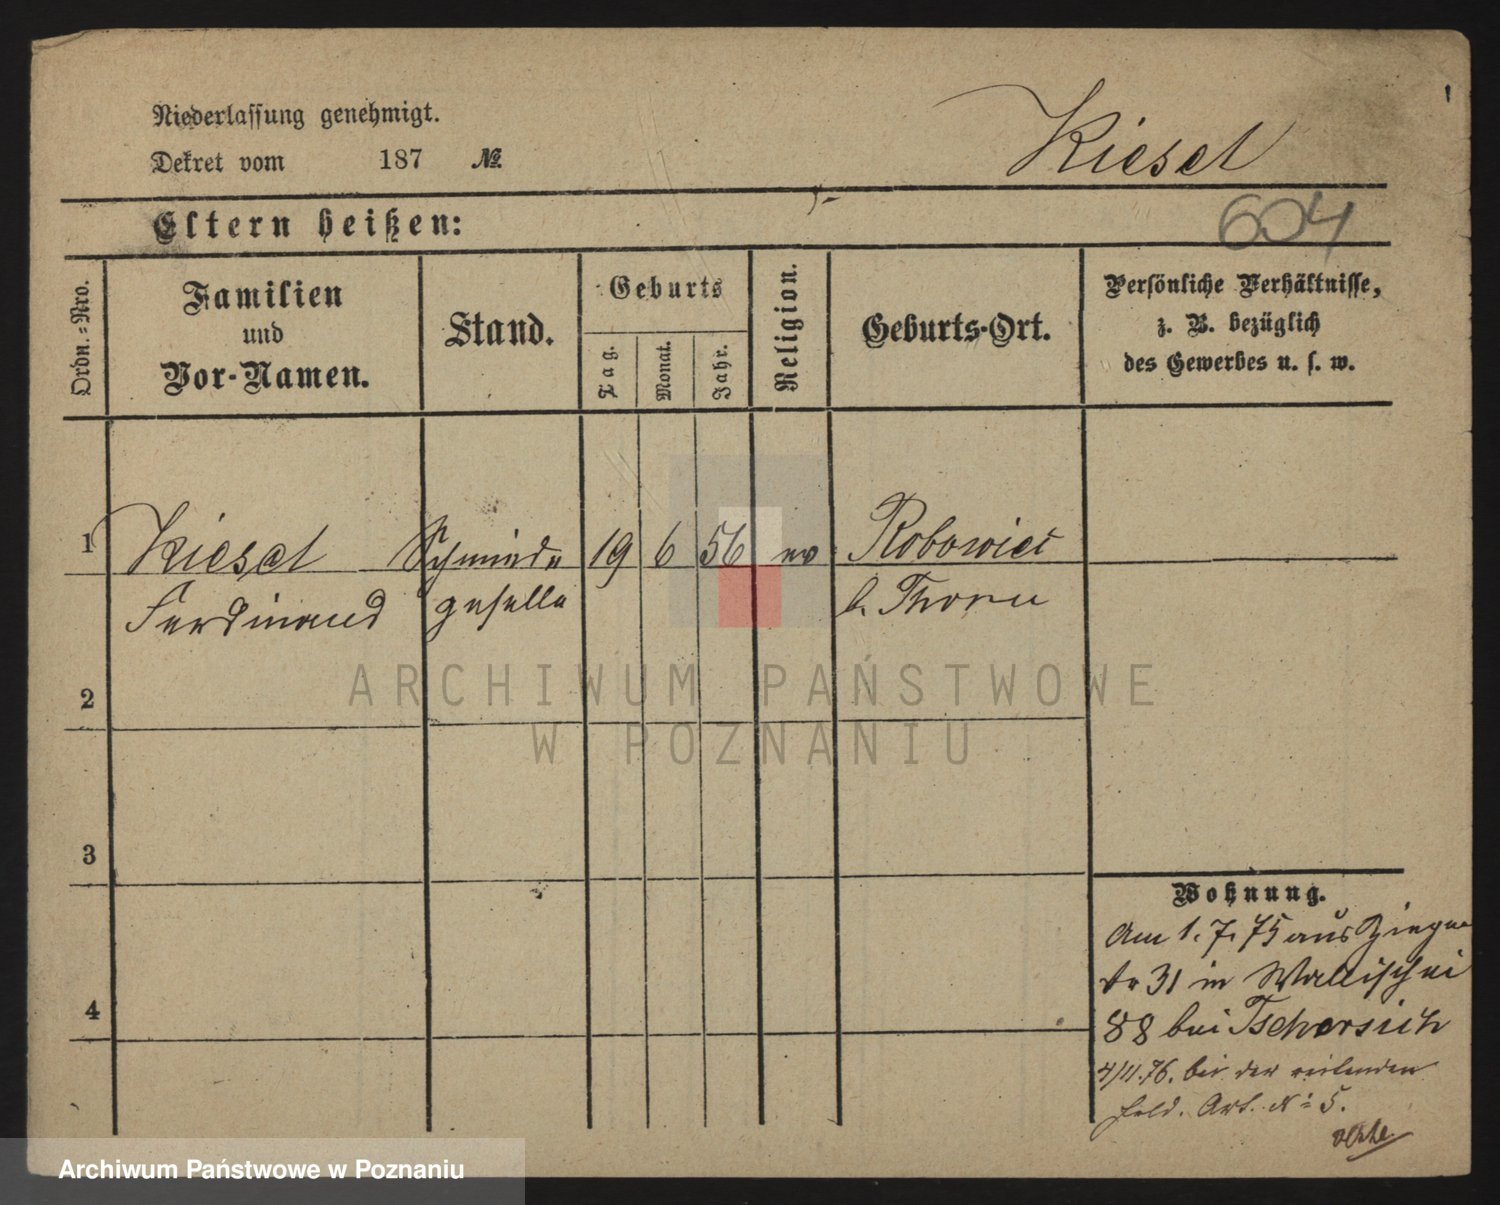 Niederlassung genehmigt.
Dekret vom 187 №
Kieset
604
Eltern heißen:
Ordn.-Nro.
Familien
und
Vor-Namen.
Stand.
Geburts
Tag.
Monat.
Jahr.
Religion.
Geburts-Ort.
Persönliche Verhältnisse,
z. B. bezüglich
des Gewerbes u. s. w.
1 Kieset Schmiede 19 6 56 ev
Ferdinand geselle b. Thorn
2
ARCHIWUM PAŃSTWOWE
W POZNANIU
3
Wohnung.
Am 1. 7. 75 aus
31 in Wallischei
4
88 bei
4/11. 76. bei der reitenden
Feld. Art. № 5.
Archiwum Państwowe w Poznaniu